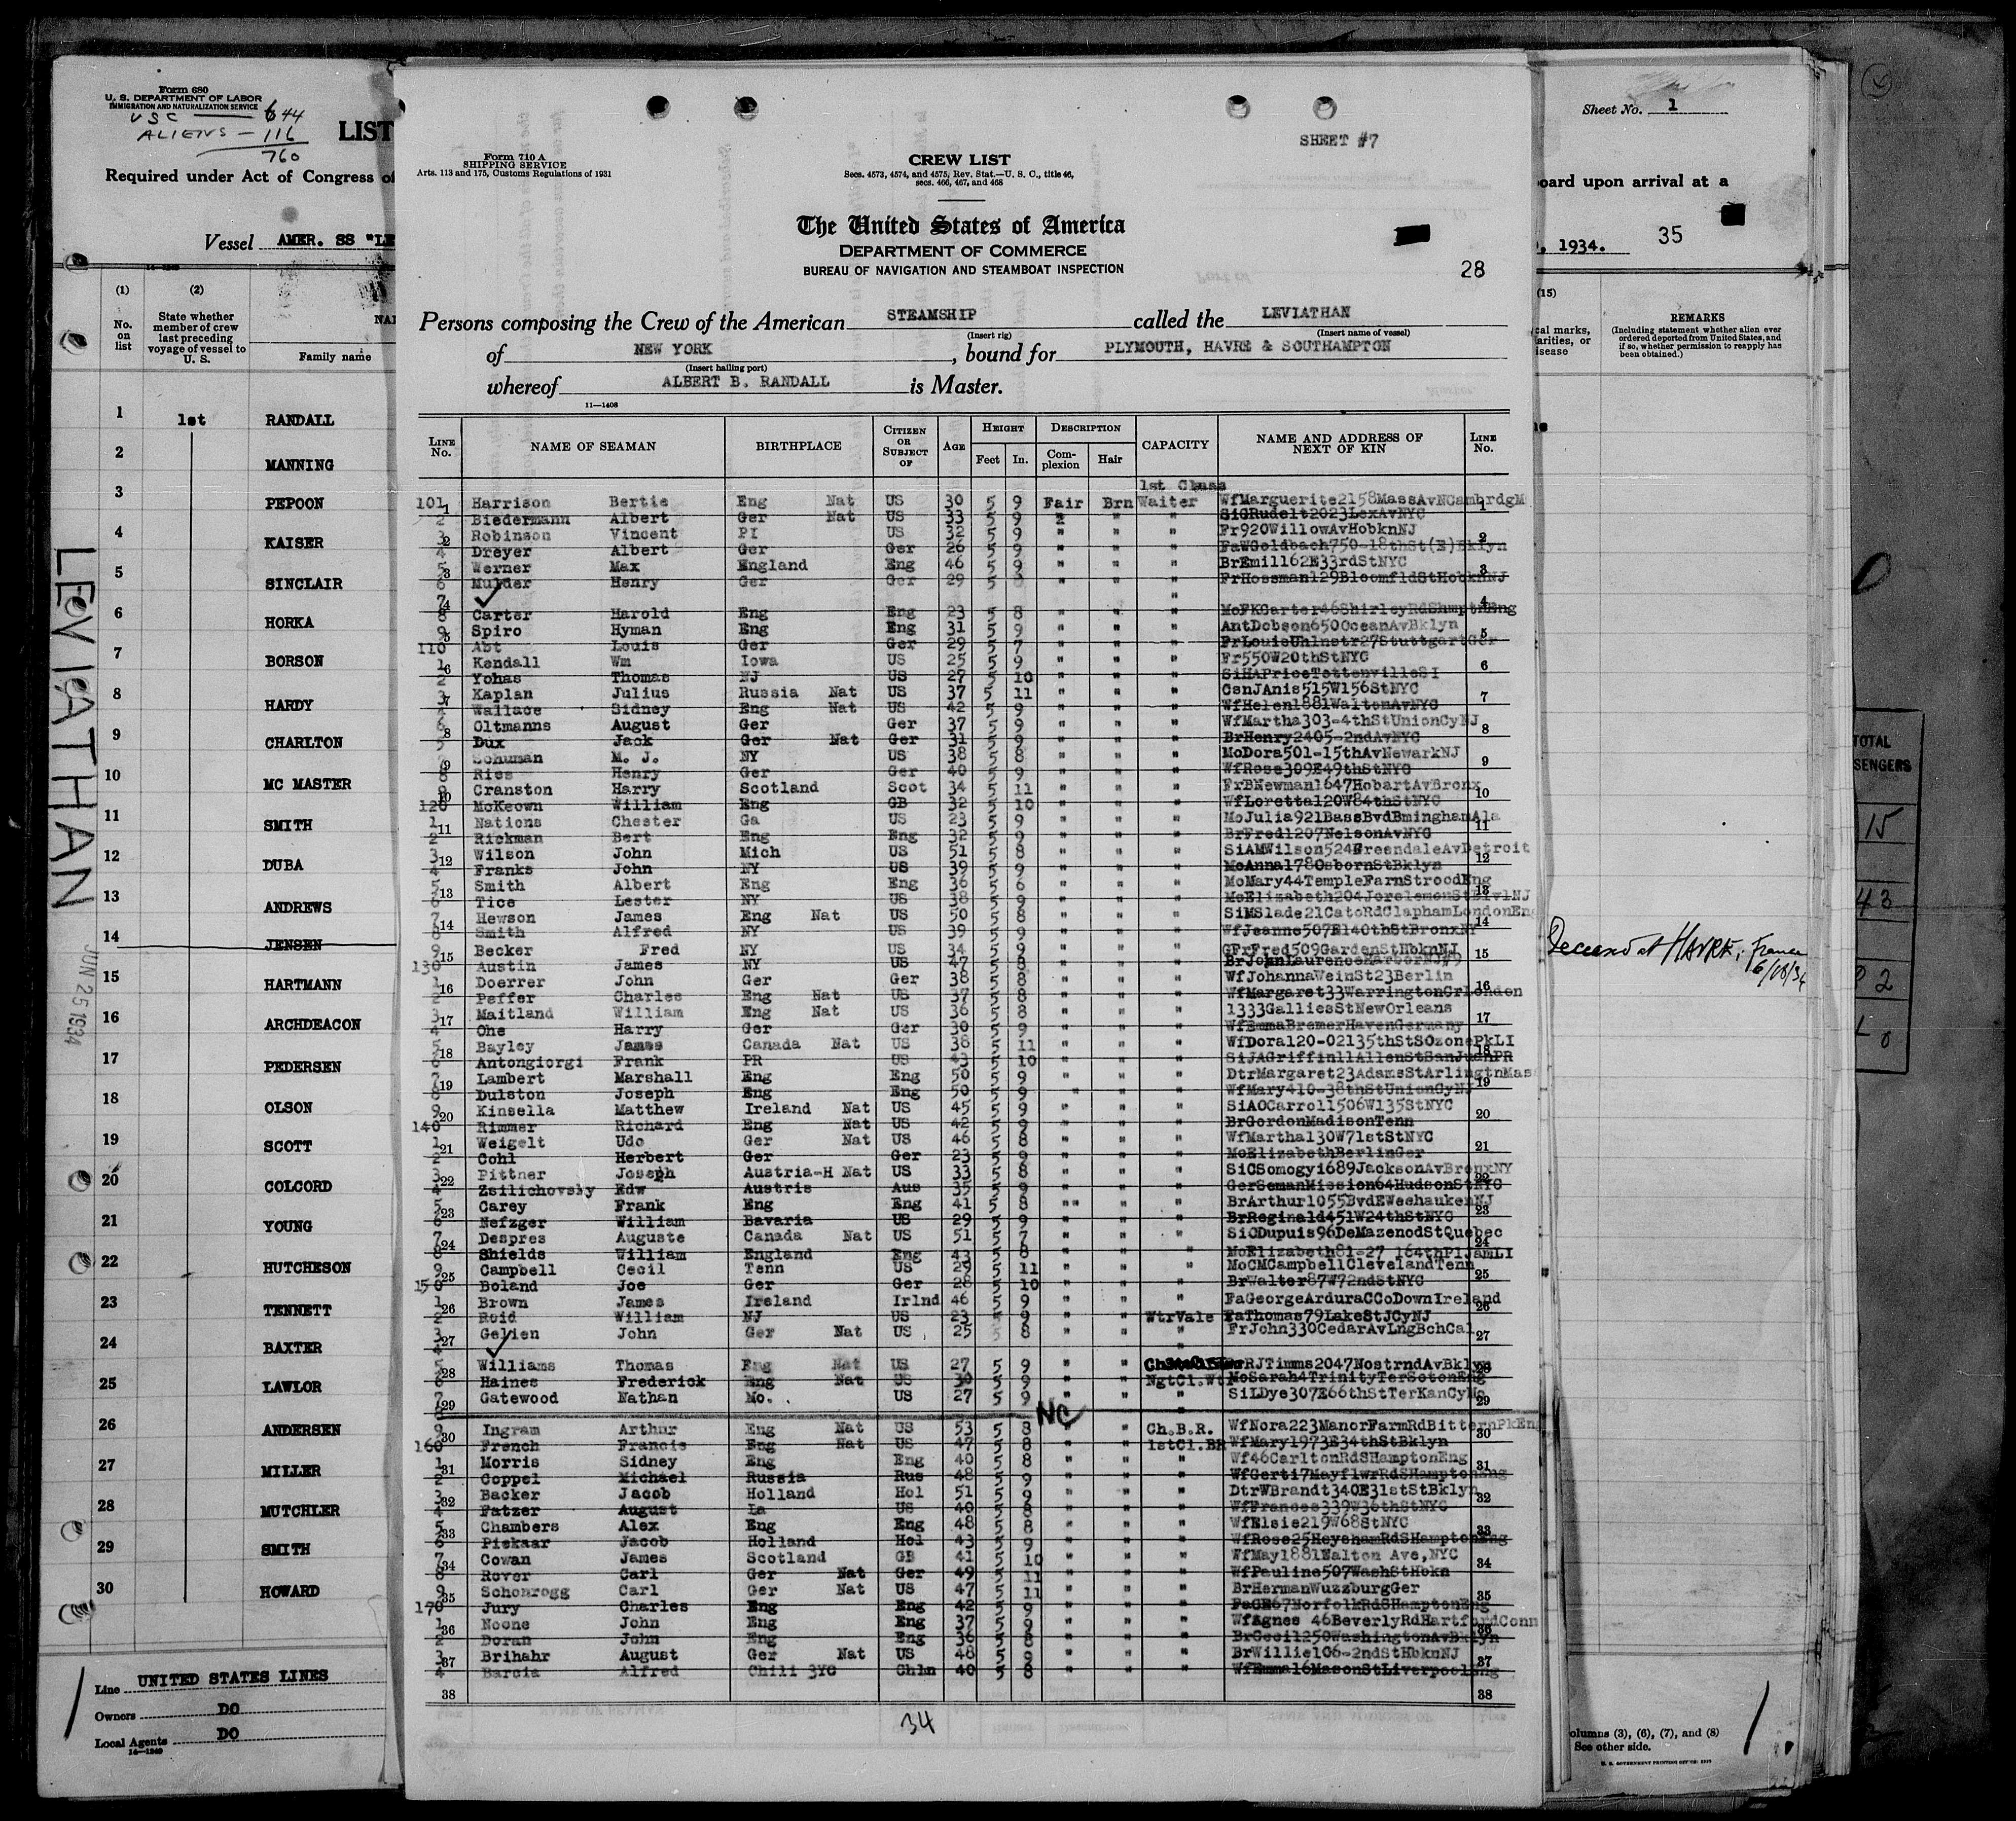 Form 680
U. S. DEPARTMENT OF LABOR
IMMIGRATION AND NATURALIZATION SERVICE
USC — 644
ALIENS — 116
760
LIST
Required under Act of Congress of
Vessel AMER. SS "LE
(1) (2)
No. on list
State whether member of crew last preceding voyage of vessel to U. S.
NA
Family name
1 1st RANDALL
2 MANNING
3 PEPOON
4 KAISER
5 SINCLAIR
6 HORKA
7 BORSON
8 HARDY
9 CHARLTON
10 MC MASTER
11 SMITH
12 DUBA
13 ANDREWS
14 JENSEN
15 HARTMANN
16 ARCHDEACON
17 PEDERSEN
18 OLSON
19 SCOTT
20 COLCORD
21 YOUNG
22 HUTCHESON
23 TENNETT
24 BAXTER
25 LAWLOR
26 ANDERSEN
27 MILLER
28 MUTCHLER
29 SMITH
30 HOWARD
LEVIATHAN
JUN 25 1934
Line UNITED STATES LINES
Owners DO
Local Agents DO
14—1240
SHEET #7
Form 710 A
SHIPPING SERVICE
Arts. 113 and 175, Customs Regulations of 1931
CREW LIST
Secs. 4573, 4574, and 4575, Rev. Stat.—U. S. C., title 46,
secs. 466, 467, and 468
The United States of America
DEPARTMENT OF COMMERCE
BUREAU OF NAVIGATION AND STEAMBOAT INSPECTION
28
Persons composing the Crew of the American STEAMSHIP called the LEVIATHAN
(Insert rig) (Insert name of vessel)
of NEW YORK, bound for PLYMOUTH, HAVRE & SOUTHAMPTON
(Insert hailing port)
whereof ALBERT B. RANDALL is Master.
11—1408
LINE No. NAME OF SEAMAN BIRTHPLACE CITIZEN OR SUBJECT OF AGE HEIGHT Feet In. DESCRIPTION Complexion Hair CAPACITY NAME AND ADDRESS OF NEXT OF KIN LINE No.
1st Class
101 Harrison Bertie Eng Nat US 30 5 9 Fair Brn Waiter WfMarguerite2158MassAvNCambrdgM 1
2 Biedermann Albert Ger Nat US 33 5 9 " " SiGRudelt2023LexAvNYC
3 Robinson Vincent PI US 32 5 9 " " " Fr920WillowAvHobknNJ 2
4 Dreyer Albert Ger Ger 26 5 9 " " " FaWGoldbach750-18thSt(E)Bklyn
5 Werner Max England Eng 46 5 9 " " " BrEmil162E33rdStNYC 3
6 Mulder Henry Ger Ger 29 5 8 " " " FrHossman129BloomfldStHobknNJ
7 " 4
8 Carter Harold Eng Eng 23 5 8 " " " MoFKCarter46ShirleyRdShmptnEng
9 Spiro Hyman Eng Eng 31 5 9 " " " AntDobson650OceanAvBklyn 5
110 Abt Louis Ger Ger 29 5 7 " " " FrLouisUhlnstr27StuttgartGer
1 Kendall Wm Iowa US 25 5 9 " " " Fr550W20thStNYC 6
2 Yohas Thomas NJ US 27 5 10 " " " SiHAPriceTottenvilleSI
3 Kaplan Julius Russia Nat US 37 5 11 " " " CsnJAnis515W156StNYC 7
4 Wallace Sidney Eng Nat US 42 5 9 " " " WfHelen1881WaltonAvNYC
6 Oltmanns August Ger Ger 37 5 9 " " " WfMartha303-4thStUnionCyNJ 8
5 Dux Jack Ger Nat Ger 31 5 9 " " " BrHenry2405-2ndAvNYC
7 Schuman M. J. NY US 38 5 8 " " " MoDora501-15thAvNewarkNJ 9
8 Ries Henry Ger Ger 40 5 9 " " " WfRose309E49thStNYC
9 Cranston Harry Scotland Scot 34 5 11 " " " FrBNewman1647HobartAvBronx 10
120 McKeown William Eng GB 32 5 10 " " " WfLoretta120W84thStNYC
1 Nations Chester Ga US 23 5 9 " " " MoJulia921BassBvdBminghamAla 11
2 Rickman Bert Eng Eng 32 5 9 " " " BrFred1207NelsonAvNYC
3 Wilson John Mich US 51 5 8 " " " SiAMWilson524GreendaleAvDetroit 12
4 Franks John NY US 39 5 9 " " " MoAnna178OsbornStBklyn
5 Smith Albert Eng Eng 36 5 6 " " " MoMary44TempleFarnStroodEng 13
6 Tice Lester NY US 38 5 9 " " " MoElizabeth204JorelemonStBlvlNJ
7 Hewson James Eng Nat US 50 5 8 " " " SiMSlade21CatoRdClaphamLondonEng 14
8 Smith Alfred NY US 39 5 9 " " " WfJeanne507E140thStBronxNY
9 Becker Fred NY US 34 5 9 " " " GFrFred509GardenStHbknNJ 15
130 Austin James NY US 47 5 8 " " " BrJohnLaurenceHarborNJ#9
1 Doerrer John Ger Ger 38 5 8 " " " WfJohannaWeinSt23Berlin 16
2 Peffer Charles Eng Nat US 37 5 8 " " " WfMargaret33WarringtonCrLondon
3 Maitland William Eng Nat US 36 5 8 " " " 1333GalliesStNewOrleans 17
4 Ohe Harry Ger Ger 30 5 9 " " " WfEmmaBremerHavenGermany
5 Bayley James Canada Nat US 38 5 11 " " " WfDora120-02135thStSOzonePkLI 18
6 Antongiorgi Frank PR US 43 5 10 " " " SiJAGriffin11AllenStSanJuanPR
7 Lambert Marshall Eng Eng 50 5 9 " " " DtrMargaret23AdamsStArlingtnMas 19
8 Dulston Joseph Eng Eng 50 5 9 " " " WfMary410-38thStUnionCyNJ
9 Kinsella Matthew Ireland Nat US 45 5 9 " " " SiAOCarroll506W135StNYC 20
140 Rimmer Richard Eng Nat US 42 5 9 " " " BrGordonMadisonTenn
1 Weigelt Udo Ger Nat US 46 5 8 " " " WfMartha130W71stStNYC 21
2 Cohl Herbert Ger Ger 23 5 9 " " " MoElizabethBerlinGer
3 Pittner Joseph Austria-H Nat US 33 5 8 " " " SiCSomogyi689JacksonAvBronxNY 22
4 Zsilichovsky Edw Austris Aus 35 5 9 " " " GerSemanMission64HudsonStNYC
5 Carey Frank Eng Eng 41 5 8 " " " BrArthur1055BvdEWeehaukenNJ 23
6 Nefzger William Bavaria US 29 5 9 " " " BrReginald451W24thStNYC
7 Despres Auguste Canada Nat US 51 5 7 " " " SiCDupuis96DeMazenodStQuebec 24
8 Shields William England Eng 43 5 8 " " " MoElizabeth81-27 164thPlJamLI
9 Campbell Cecil Tenn US 29 5 11 " " " MoCMCampbellClevelandTenn 25
150 Boland Joe Ger Ger 28 5 10 " " " BrWalter87W72ndStNYC
1 Brown James Ireland Irlnd 46 5 9 " " " FaGeorgeArduraCCoDownIreland 26
2 Reid William NJ US 23 5 9 " " WtrVale FaThomas79LakeStJCyNJ
3 Gelien John Ger Nat US 25 5 8 " " " FrJohn330CedarAvLngBchCal 27
4 "
5 Williams Thomas Eng Nat US 27 5 9 " " RJTimms2047NostrndAvBklyn 28
6 Haines Frederick Eng Nat US 30 5 9 " " NgtCl.Wt MoSarah4TrinityTerSotonEng
7 Gatewood Nathan Mo. US 27 5 9 " " " SiLDye307E66thStTerKanCyMo 29
NC
9 Ingram Arthur Eng Nat US 53 5 8 " " Ch.B.R. WfNora223ManorFarmRdBitternPkEn 30
160 French Francis Eng Nat US 47 5 8 " " 1stCl.BR WfMary1973E34thStBklyn
1 Morris Sidney Eng Eng 40 5 8 " " " Wf46CarltonRdSHamptonEng 31
2 Coppel Michael Russia Rus 48 5 9 " " " WfGerti7MayflwrRdSHamptonEng
3 Backer Jacob Holland Hol 51 5 9 " " " DtrWBrandt340E31stStBklyn 32
4 Fatzer August La US 40 5 8 " " " WfFrances339W36thStNYC
5 Chambers Alex Eng Eng 48 5 8 " " " WfElsie219W68StNYC 33
6 Piekaar Jacob Holland Hol 43 5 9 " " " WfRose25HeyshamRdSHamptonEng
7 Cowan James Scotland GB 41 5 10 " " " WfMay1881Walton Ave,NYC 34
8 Rover Carl Ger Nat Ger 49 5 11 " " " WfPauline507WashStHbkn
9 Schonrogg Carl Ger Nat US 47 5 11 " " " BrHermanWuzzburgGer 35
170 Jury Charles Eng Eng 42 5 9 " " " FaGE67NorfolkRdSHamptonEng
1 Noone John Eng Eng 37 5 9 " " " WfAgnes 46BeverlyRdHartfordConn 36
2 Doran John Eng Eng 36 5 8 " " " BrCecil250WashingtonAvBklyn
3 Brihahr August Ger Nat US 48 5 9 " " " BrWillie106-2ndStHbknNJ 37
4 Barcia Alfred Chili 3YC Chln 40 5 8 " " " WfEmma16MasonStLiverpoolEng
38 38
34
Sheet No. 1
oard upon arrival at a
, 1934. 35
(15)
cal marks,
arities, or
isease
REMARKS
(Including statement whether alien ever ordered deported from United States, and if so, whether permission to reapply has been obtained.)
Deceased at HAVRE, France
6/18/34
olumns (3), (6), (7), and (8)
See other side.
TOTAL
SENGERS
15
43
02